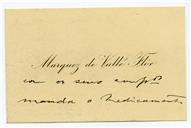 Marquez de Valle Flôr
com os seus cumptos
manda o medicamento